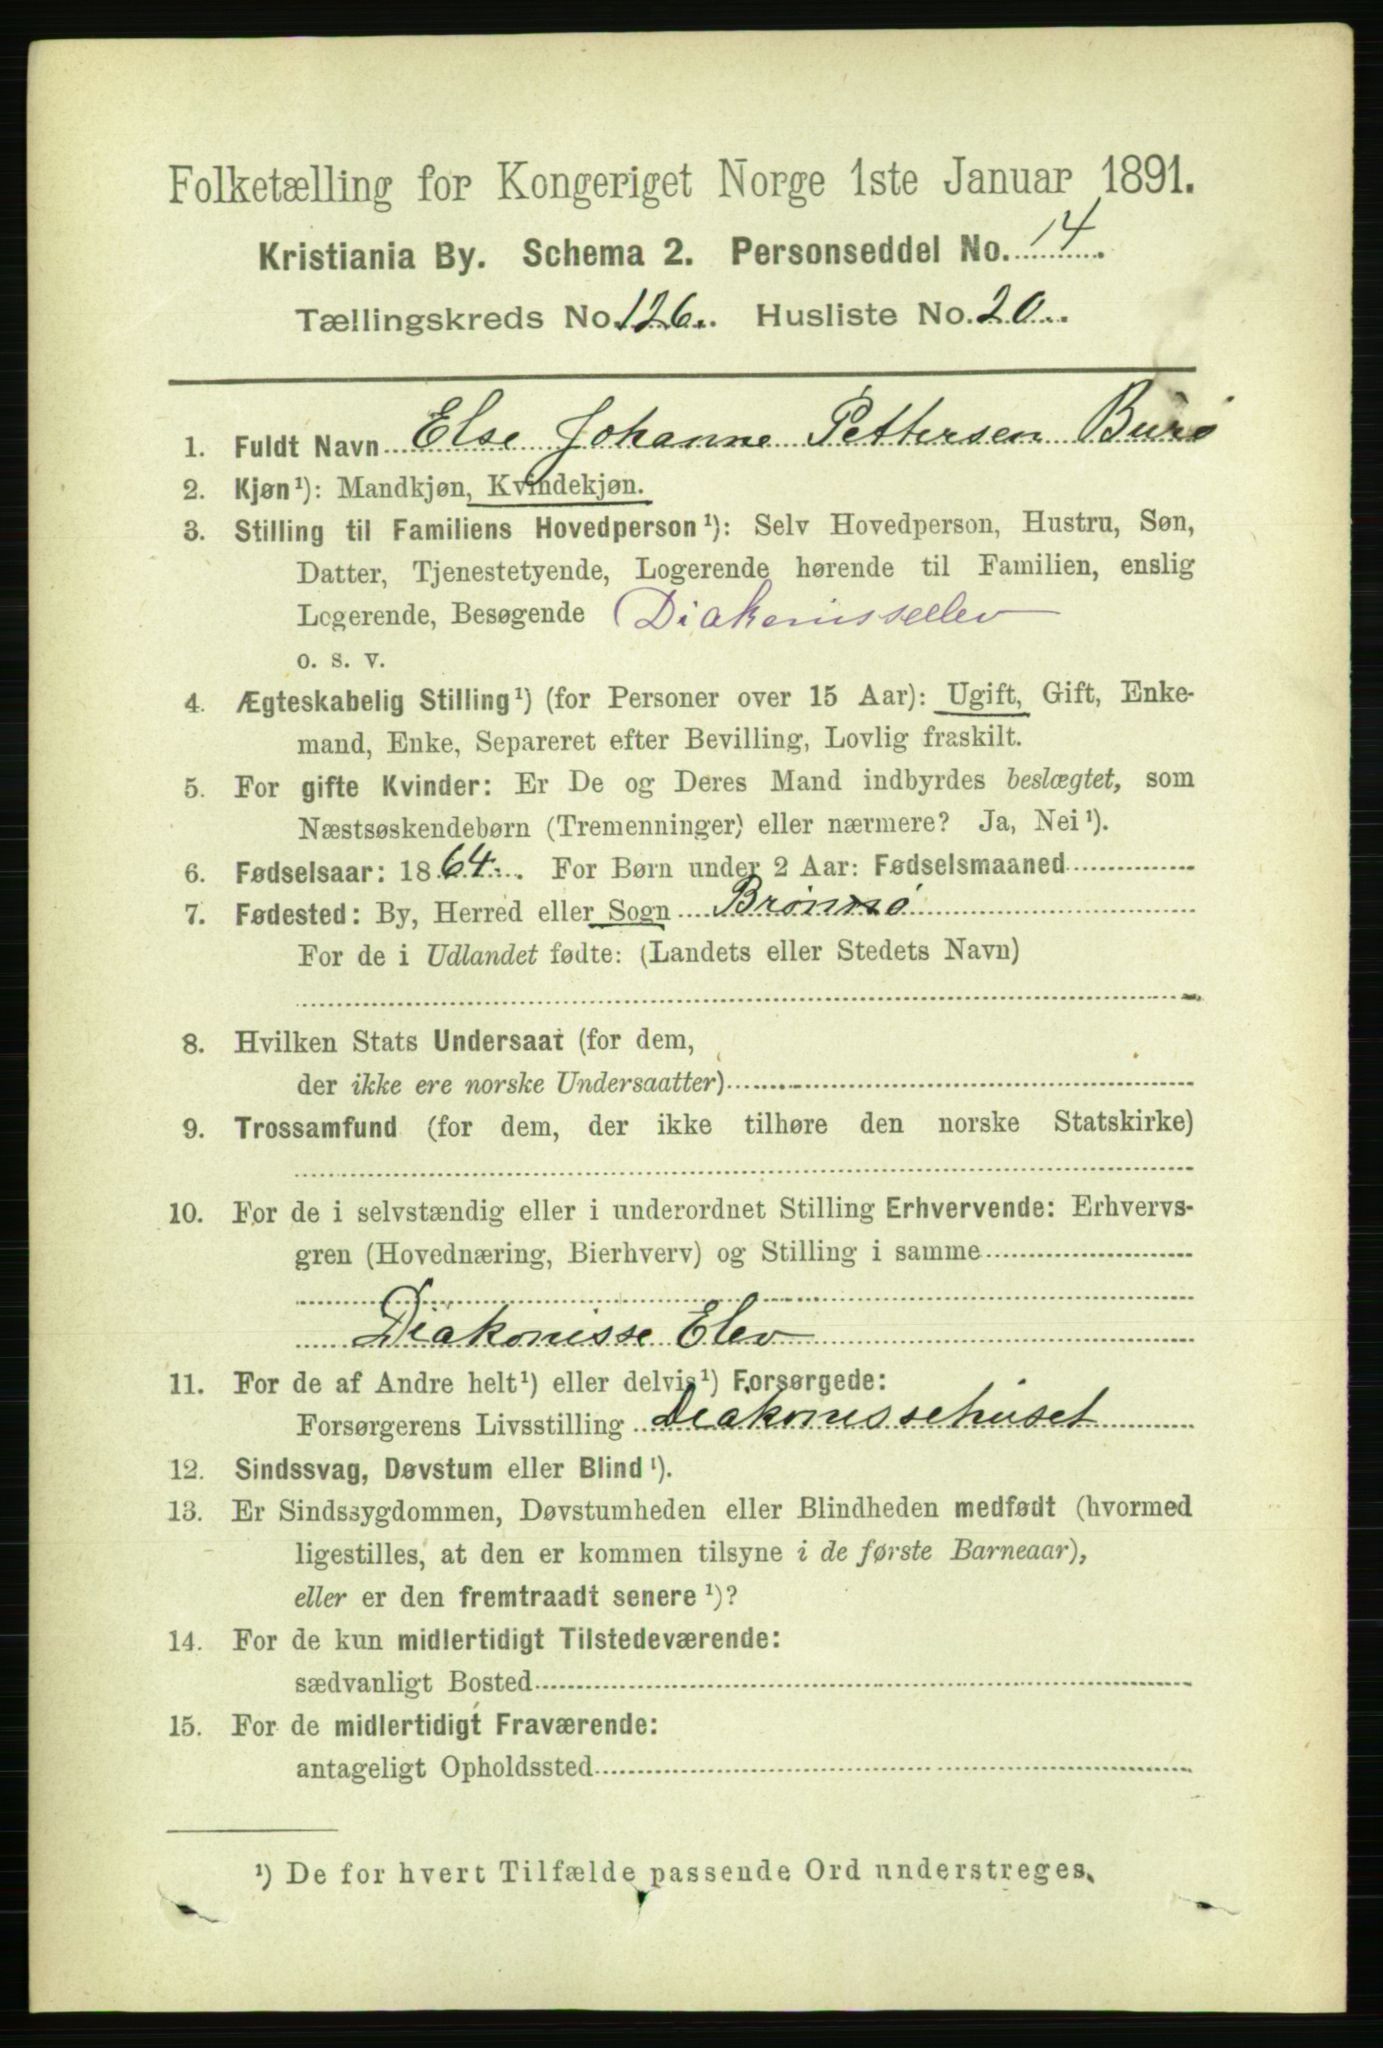 Folketælling for Kongeriget Norge 1ste Januar 1891.
Kristiania By. Schema 2. Personseddel No. 14.
Tællingskreds No. 126. Husliste No. 20.
1. Fuldt Navn Else Johanne Pettersen Burø
2. Kjøn¹): Mandkjøn, Kvindekjøn.
3. Stilling til Familiens Hovedperson¹): Selv Hovedperson, Hustru, Søn,
Datter, Tjenestetyende, Logerende hørende til Familien, enslig
Logerende, Besøgende Diakonisseelev
o. s. v.
4. Ægteskabelig Stilling¹) (for Personer over 15 Aar): Ugift, Gift, Enke-
mand, Enke, Separeret efter Bevilling, Lovlig fraskilt.
5. For gifte Kvinder: Er De og Deres Mand indbyrdes beslægtet, som
Næstsøskendebørn (Tremenninger) eller nærmere? Ja, Nei¹).
6. Fødselsaar: 1864. For Børn under 2 Aar: Fødselsmaaned
7. Fødested: By, Herred eller Sogn Brønnø
For de i Udlandet fødte: (Landets eller Stedets Navn)
8. Hvilken Stats Undersaat (for dem,
der ikke ere norske Undersaatter)
9. Trossamfund (for dem, der ikke tilhøre den norske Statskirke)
10. For de i selvstændig eller i underordnet Stilling Erhvervende: Erhvervs-
gren (Hovednæring, Bierhverv) og Stilling i samme
Diakonisse Elev
11. For de af Andre helt¹) eller delvis¹) Forsørgede:
Forsørgerens Livsstilling Diakonissehuset
12. Sindssvag, Døvstum eller Blind¹).
13. Er Sindssygdommen, Døvstumheden eller Blindheden medfødt (hvormed
ligestilles, at den er kommen tilsyne i de første Barneaar),
eller er den fremtraadt senere¹)?
14. For de kun midlertidigt Tilstedeværende:
sædvanligt Bosted
15. For de midlertidigt Fraværende:
antageligt Opholdssted
¹) De for hvert Tilfælde passende Ord understreges.